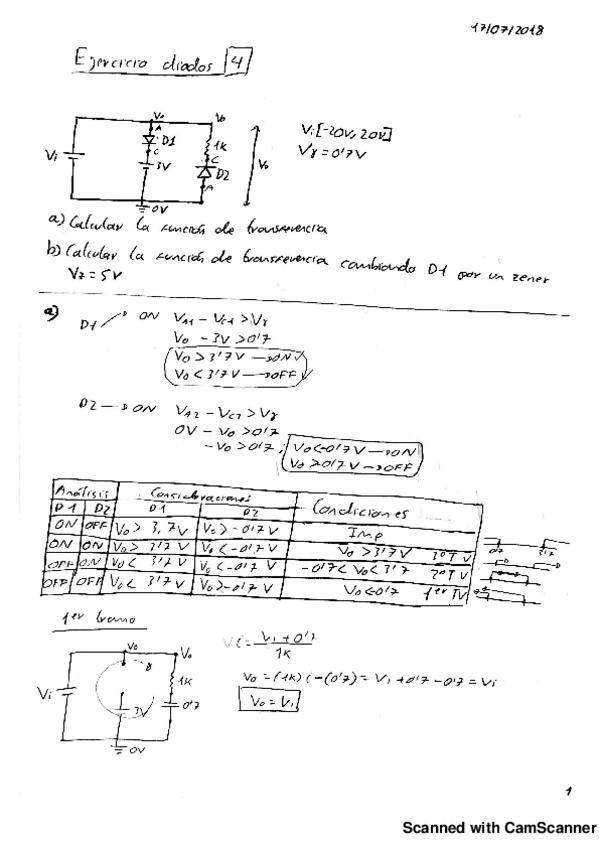 17/07/2018
Ejercicio diodos 4
Vo Vo
A
D1 1K
Vi C C Vo
3V D2
A
0V
Vi [-20V, 20V]
Vγ = 0'7V
a) Calcular la función de transferencia
b) Calcular la función de transferencia cambiando D1 por un zener
Vz = 5V
a)
D1 → ON VA1 - VC1 > Vγ
Vo - 3V > 0'7
Vo > 3'7V → ON
Vo < 3'7V → OFF
D2 → ON VA2 - VC2 > Vγ
0V - Vo > 0'7
-Vo > 0'7; Vo < -0'7V → ON
Vo > 0'7V → OFF
Análisis Consideraciones Condiciones
D1 D2 D1 D2
ON OFF Vo > 3,7V Vo > -0'7V Imp
ON ON Vo > 3'7V Vo < -0'7V Vo > 3'7V 3º T V
OFF ON Vo < 3'7V Vo < -0'7V -0'7 < Vo < 3'7 2º T V
OFF OFF Vo < 3'7V Vo > -0'7V Vo < 0'7 1er T V
1er tramo
Vo Vo
1K
Vi 3V 0'7
0V
i = Vi + 0'7
1K
Vo = (1K) i - (0'7) = Vi + 0'7 - 0'7 = Vi
Vo = Vi
1
Scanned with CamScanner